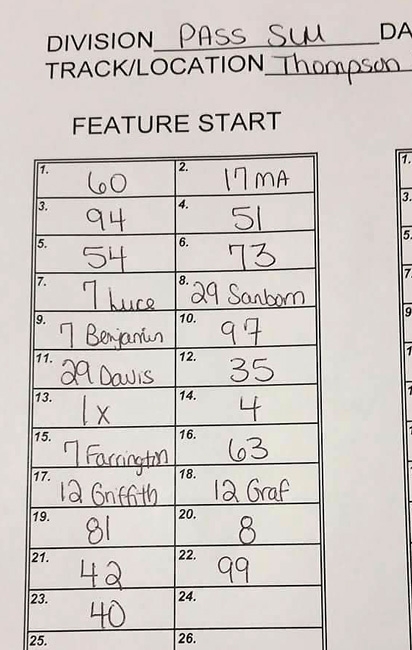 DIVISION PASS SLM DA
TRACK/LOCATION Thompson
FEATURE START
1. 60 2. 17MA 1.
3. 94 4. 51 3.
5. 54 6. 73 5.
7. 7 Luce 8. 29 Sanborn 7.
9. 7 Benjamin 10. 97 9
11. 29 Davis 12. 35 1
13. 1x 14. 4 1
15. 7 Farrington 16. 63
17. 12 Griffith 18. 12 Graf
19. 81 20. 8
21. 42 22. 99
23. 40 24.
25. 26.